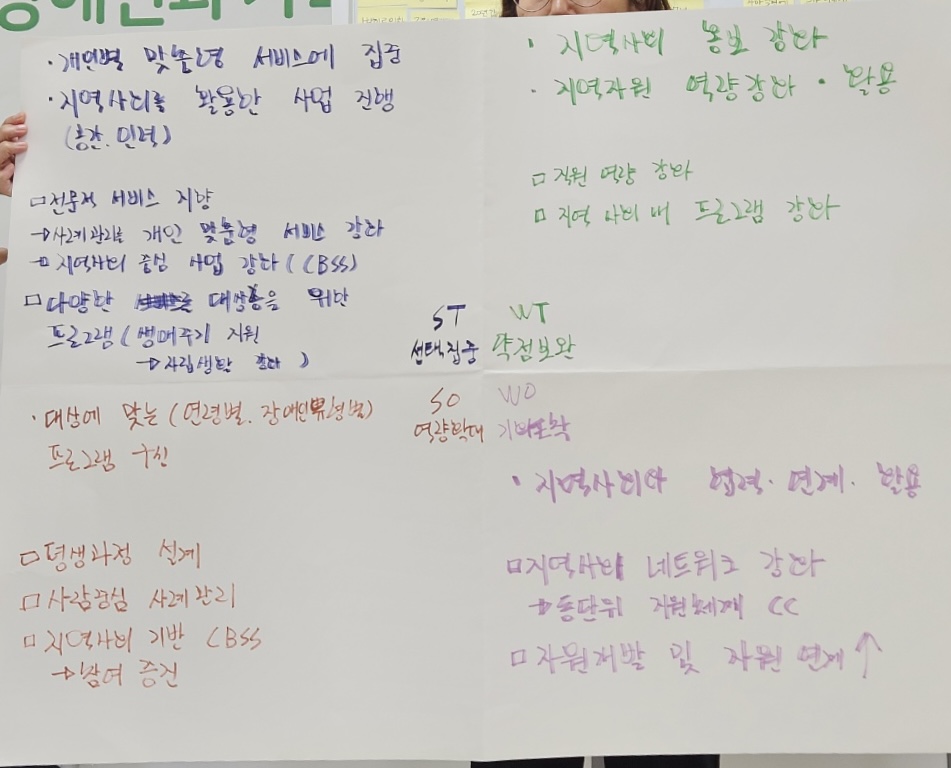 · 개인별 맞춤형 서비스에 집중
· 지역사회를 활용한 사업 진행
(공간. 인력)
□ 전문적 서비스 지향
→ 사례관리를 개인 맞춤형 서비스 강화
□ 지역사회 중심 사업 강화 (CBSS)
□ 다양한 대상층을 위한
프로그램 (생애주기 지원
→ 자립생활 강화 )
ST
선택집중
· 지역사회 홍보 강화
· 지역자원 역량강화 · 활용
□ 직원 역량 강화
□ 지역 사회 내 프로그램 강화
WT
약점보완
· 대상에 맞는 (연령별. 장애인유형별)
프로그램 구성
SO
역량확대
□ 평생과정 설계
□ 사람중심 사례관리
□ 지역사회 기반 CBSS
→ 참여 증진
WO
기회포착
· 지역사회와 협력 · 연계 · 활용
□ 지역사회 네트워크 강화
→ 동단위 지원체계 CC
□ 자원개발 및 자원 연계 ↑